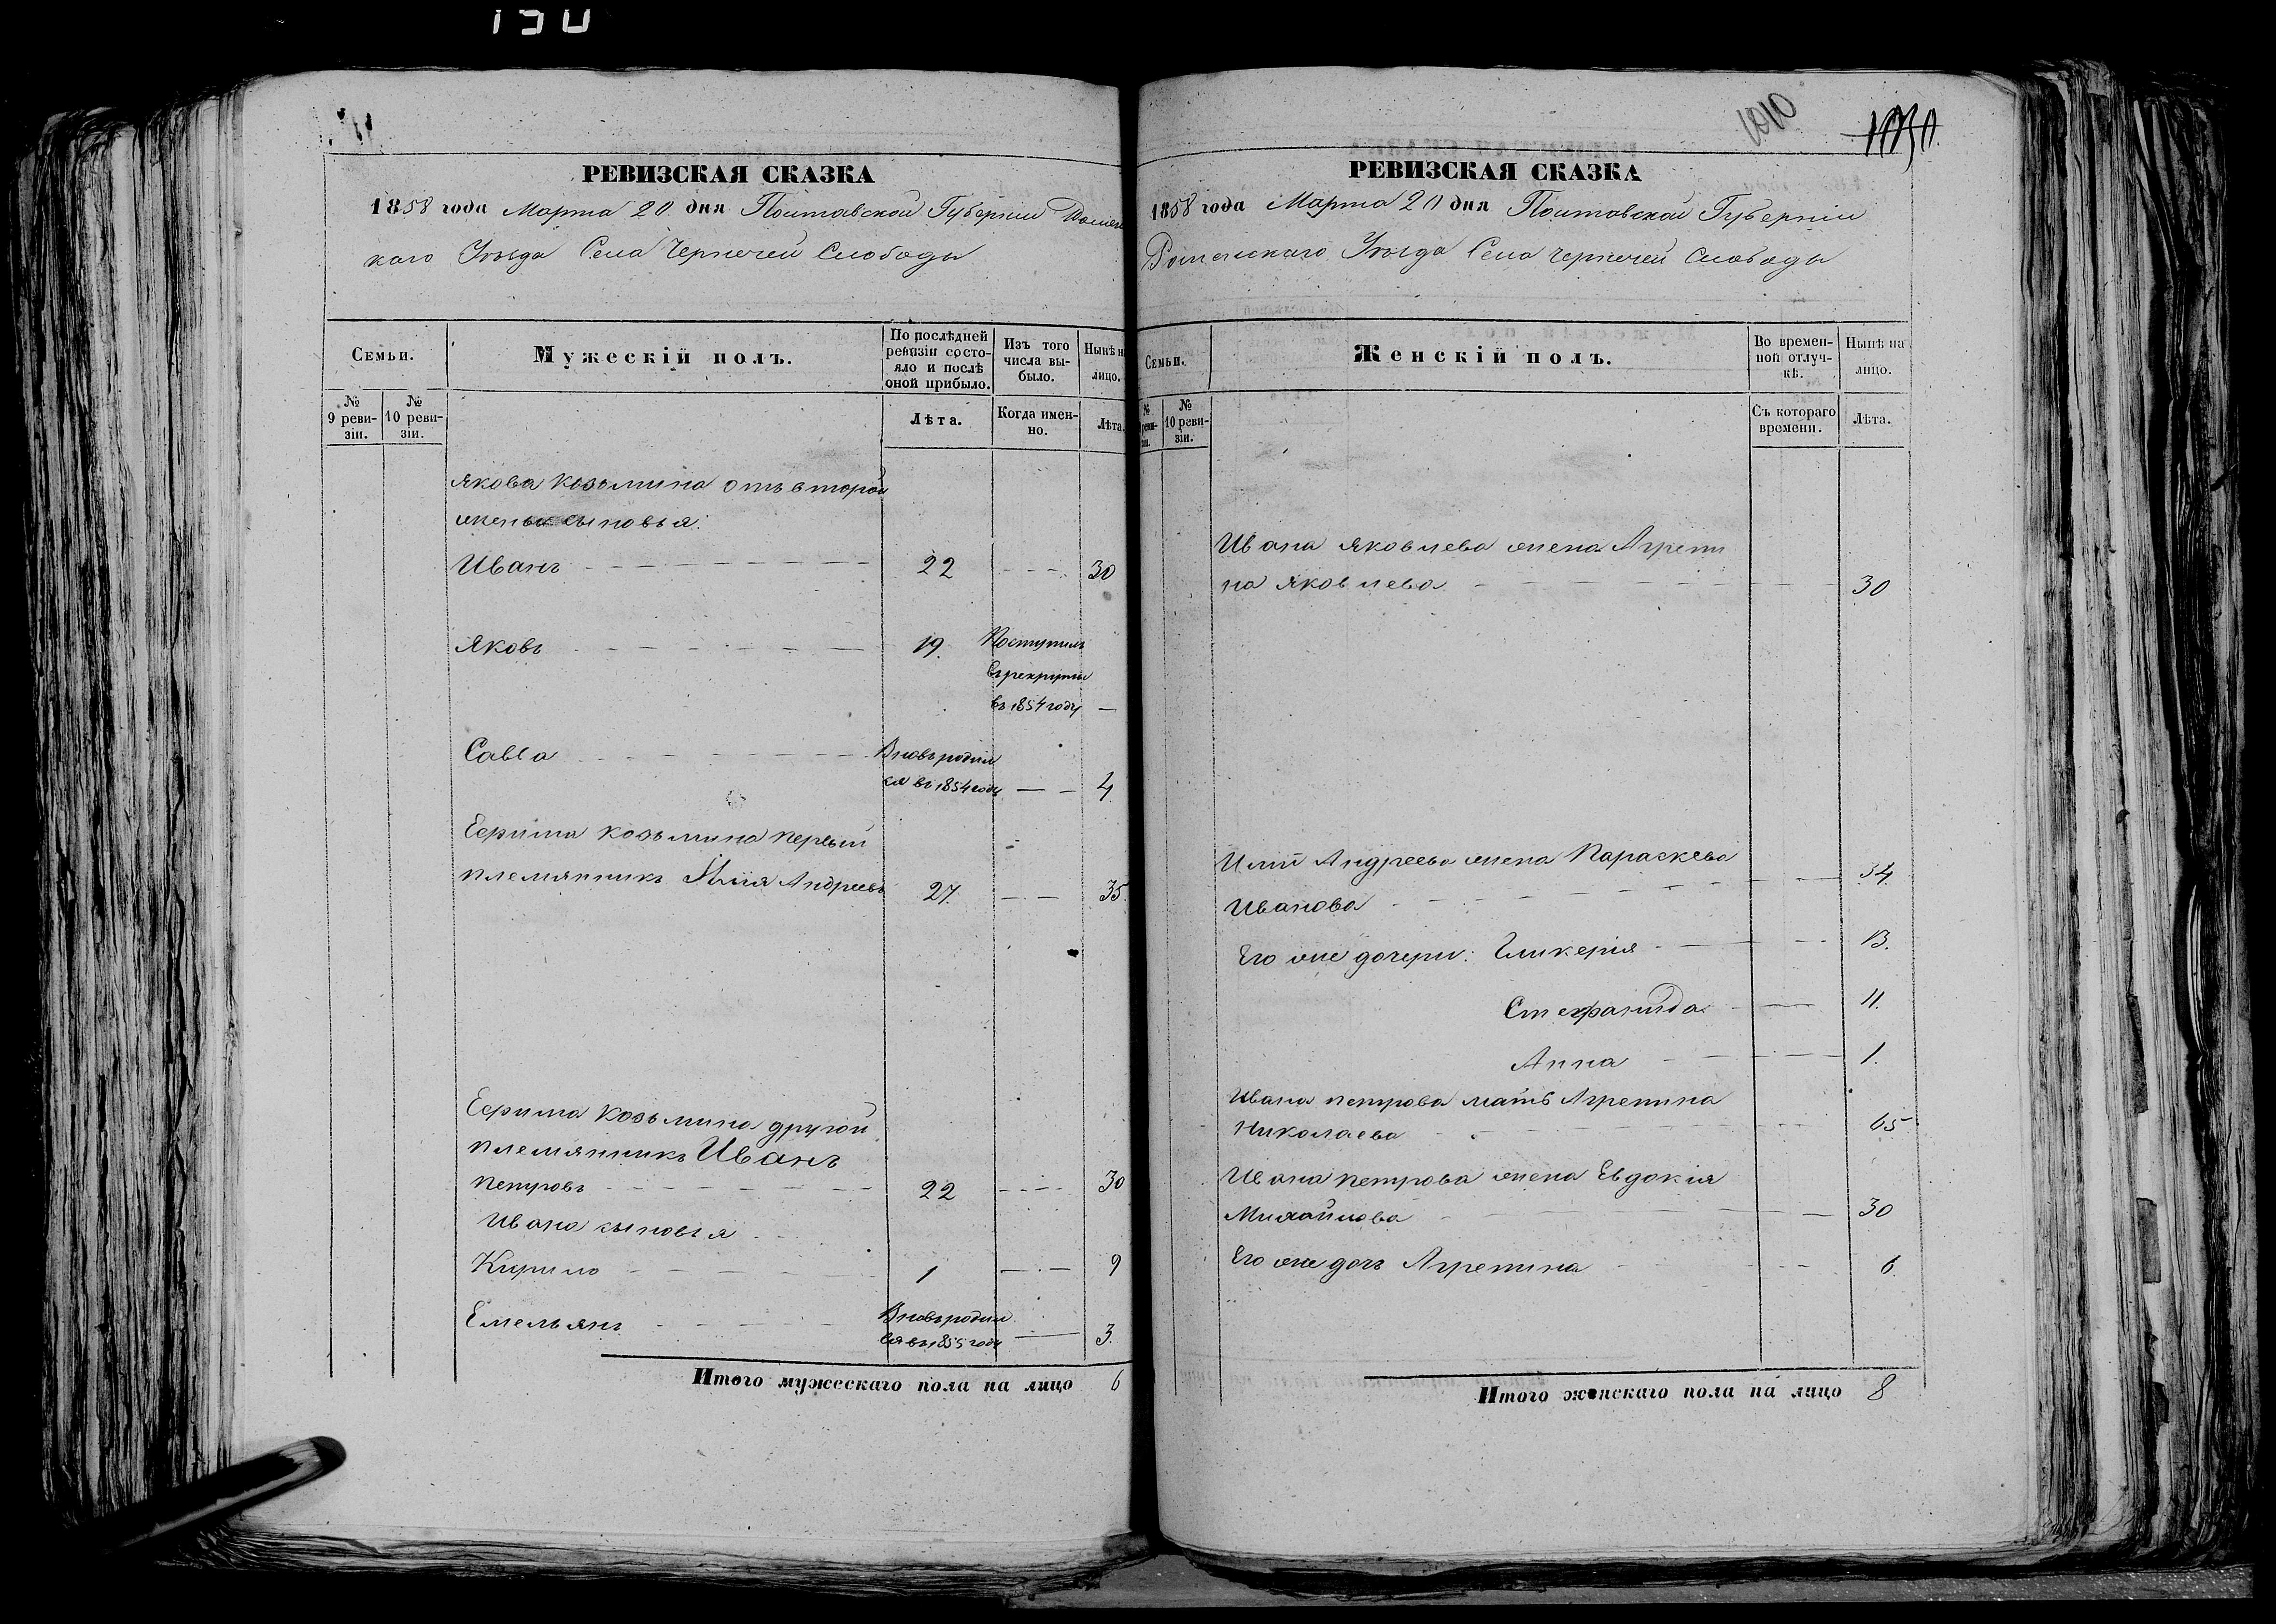 130
РЕВИЗСКАЯ СКАЗКА
1858 года Марта 20 дня Полтавской Губерніи Ромен
каго Уѣзда Села Чернечей Слободы
Семьи.
Мужескій полъ.
По послѣдней ревизіи состояло и послѣ оной прибыло.
Изъ того числа выбыло.
Нынѣ на лицо.
№ 9 ревизіи.
№ 10 ревизіи.
Лѣта.
Когда именно.
Лѣта.
Якова Козьмина отъ второй
жены сыновья:
Иванъ 22 30
Яковъ 19. Поступилъ
въ рекруты
въ 1854 году —
Савва Вновь родил
ся въ 1854 году 4.
Ефима Козьмина первый
племянникъ Илія Андреевъ 27. 35.
Ефима Козьмина другой
племянникъ Иванъ
Петровъ 22 30
Ивана сыновья
Кирило 1 9
Емельянъ Вновь родил
ся въ 1855 году 3.
Итого мужескаго пола на лицо 6
1010
РЕВИЗСКАЯ СКАЗКА
1858 года Марта 20 дня Полтавской Губерніи
Роменскаго Уѣзда Села Чернечей Слободы
Семьи.
Женскій полъ.
Во временной отлучкѣ.
Нынѣ на лицо.
№ ревизіи.
№ 10 ревизіи.
Съ котораго времени.
Лѣта.
Ивана Яковлева жена Агрепи
на Яковлева 30
Иліи Андреева жена Параскева
Иванова 34.
Его же дочери: Гликерія 13.
Стефанида 11.
Анна 1.
Ивана Петрова мать Агрепина
Николаева 65
Ивана Петрова жена Евдокія
Михайлова 30
Его же дочь Агрепина 6.
Итого женскаго пола на лицо 8